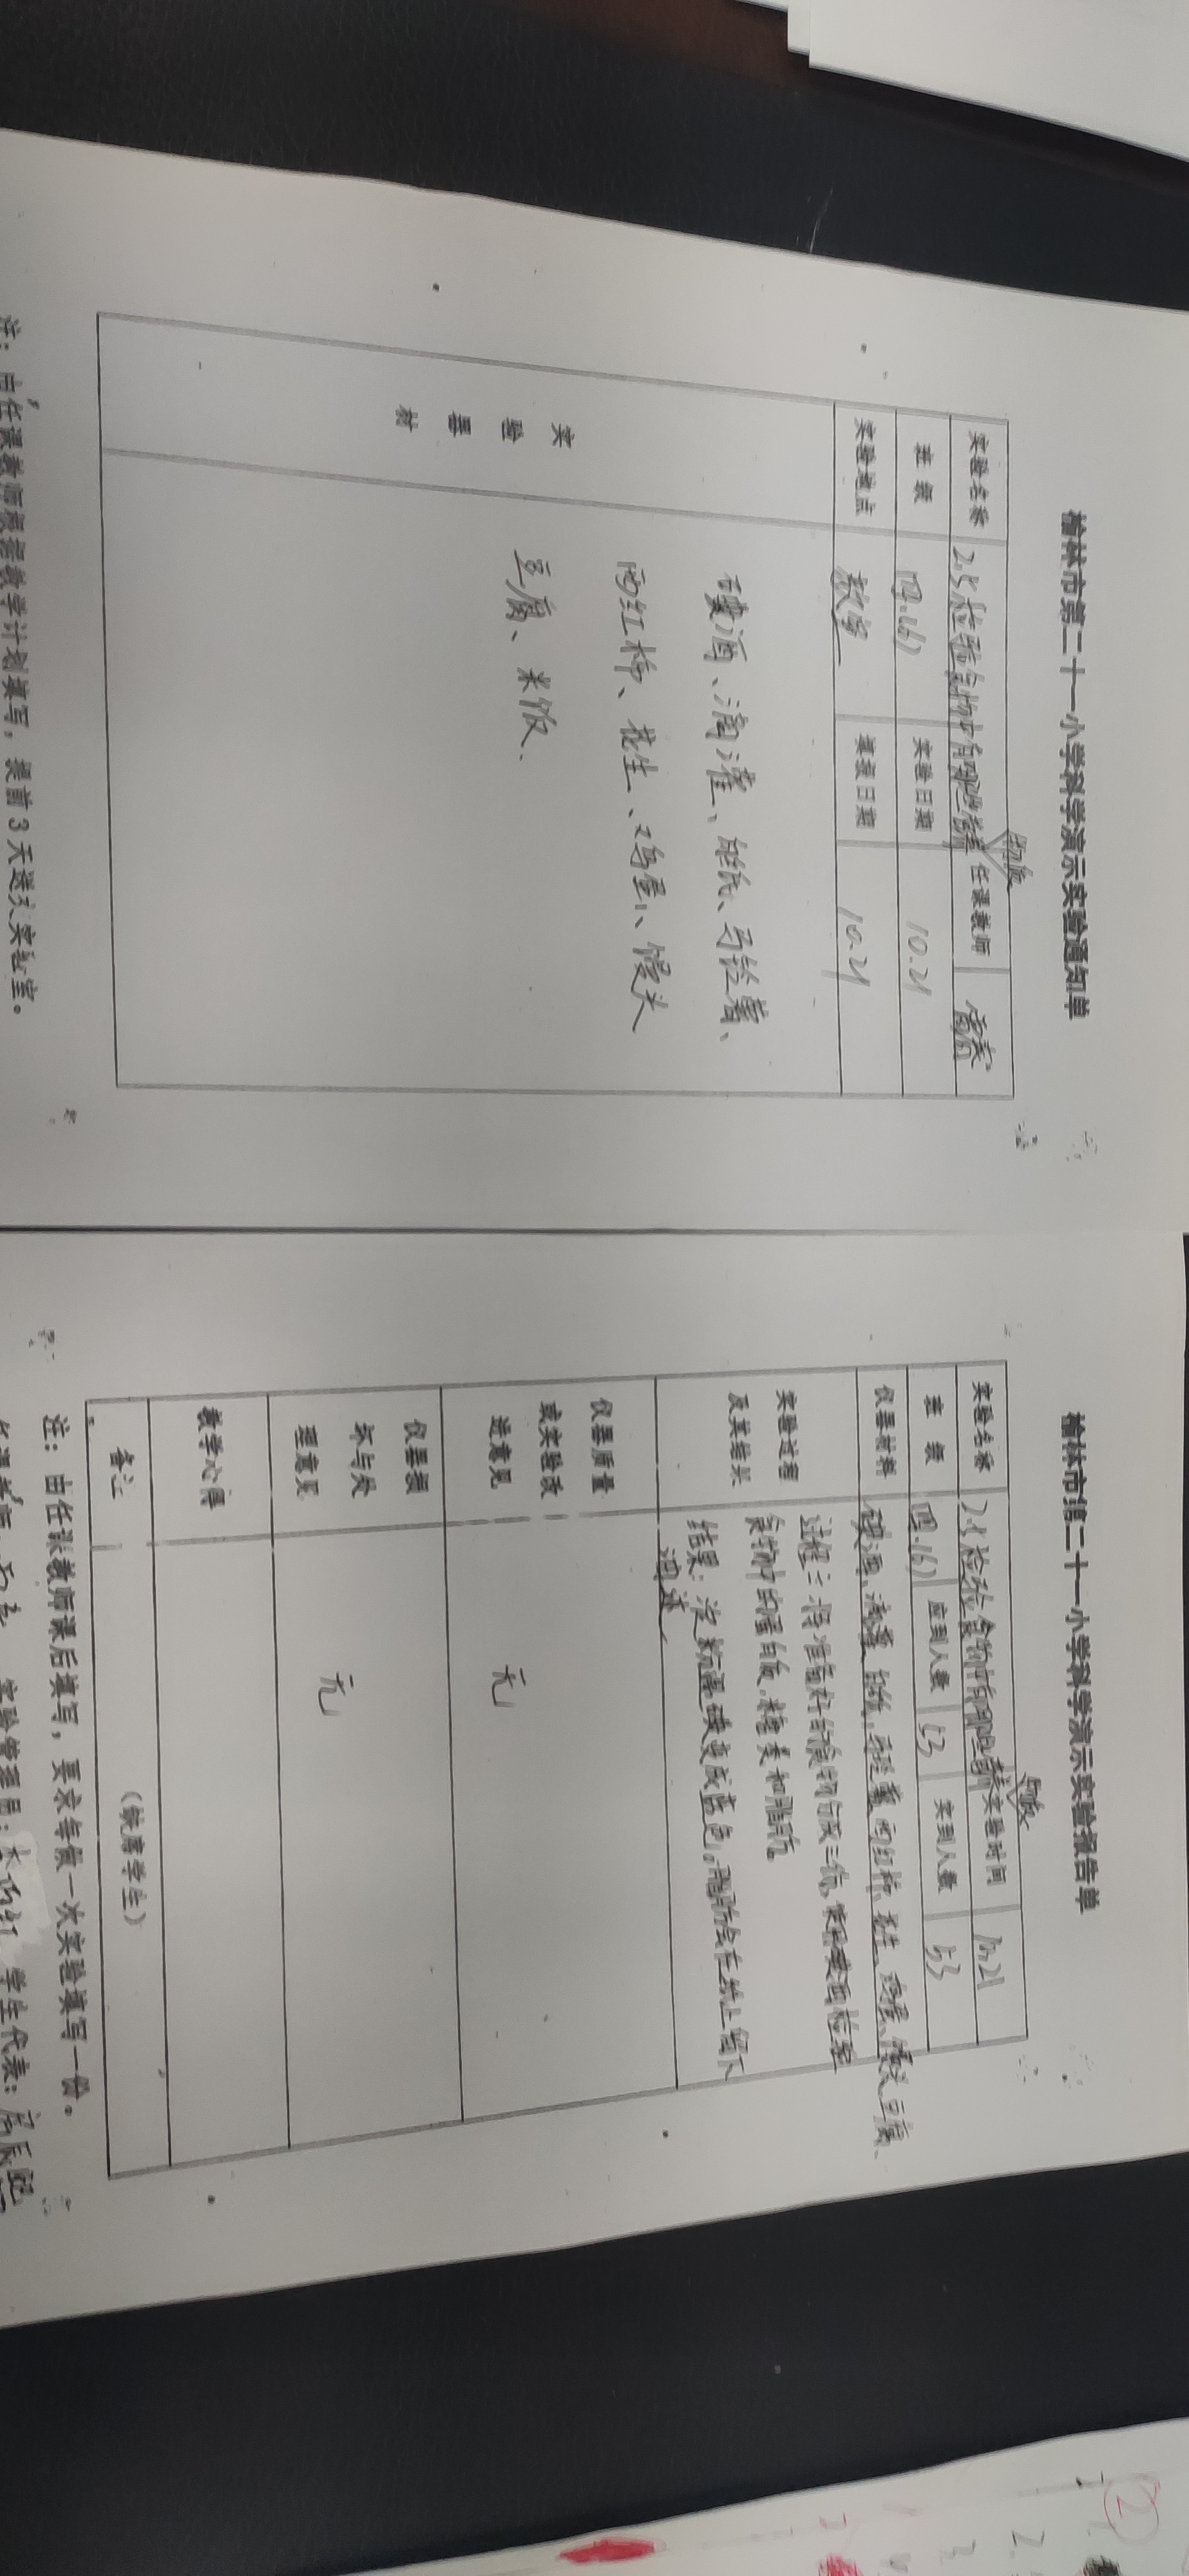 榆林市第二十一小学科学演示实验通知单
实验名称 2.5检验食物中有哪些营养物质 任课教师
班级 四.(6) 实验日期 10.21
实验地点 教室 填表日期 10.21
实验器材
碘酒、滴灌、白纸、马铃薯、
西红柿、花生、鸡蛋、馒头
豆腐、米饭、
注：由任课教师根据教学计划填写，提前3天送交实验室。
榆林市第二十一小学科学演示实验报告单
实验名称 2.5检验食物中有哪些营养物质 实验时间 10.21
班级 四.(6) 应到人数 53 实到人数 53
仪器材料 碘酒、滴灌、白纸、马铃薯、西红柿、花生、鸡蛋、馒头、豆腐、
实验过程及其结果
过程：将准备好的食物切成三份，使用碘酒检验
食物中的蛋白质、糖类和脂肪。
结果：淀粉遇碘变成蓝色，脂肪会在纸上留下
油迹
仪器质量或实验改进意见 无
仪器损坏与处理意见 无
教学心得
备注 （缺席学生）
注：由任课教师课后填写，要求每做一次实验填写一份。
实验管理员： 学生代表：
②